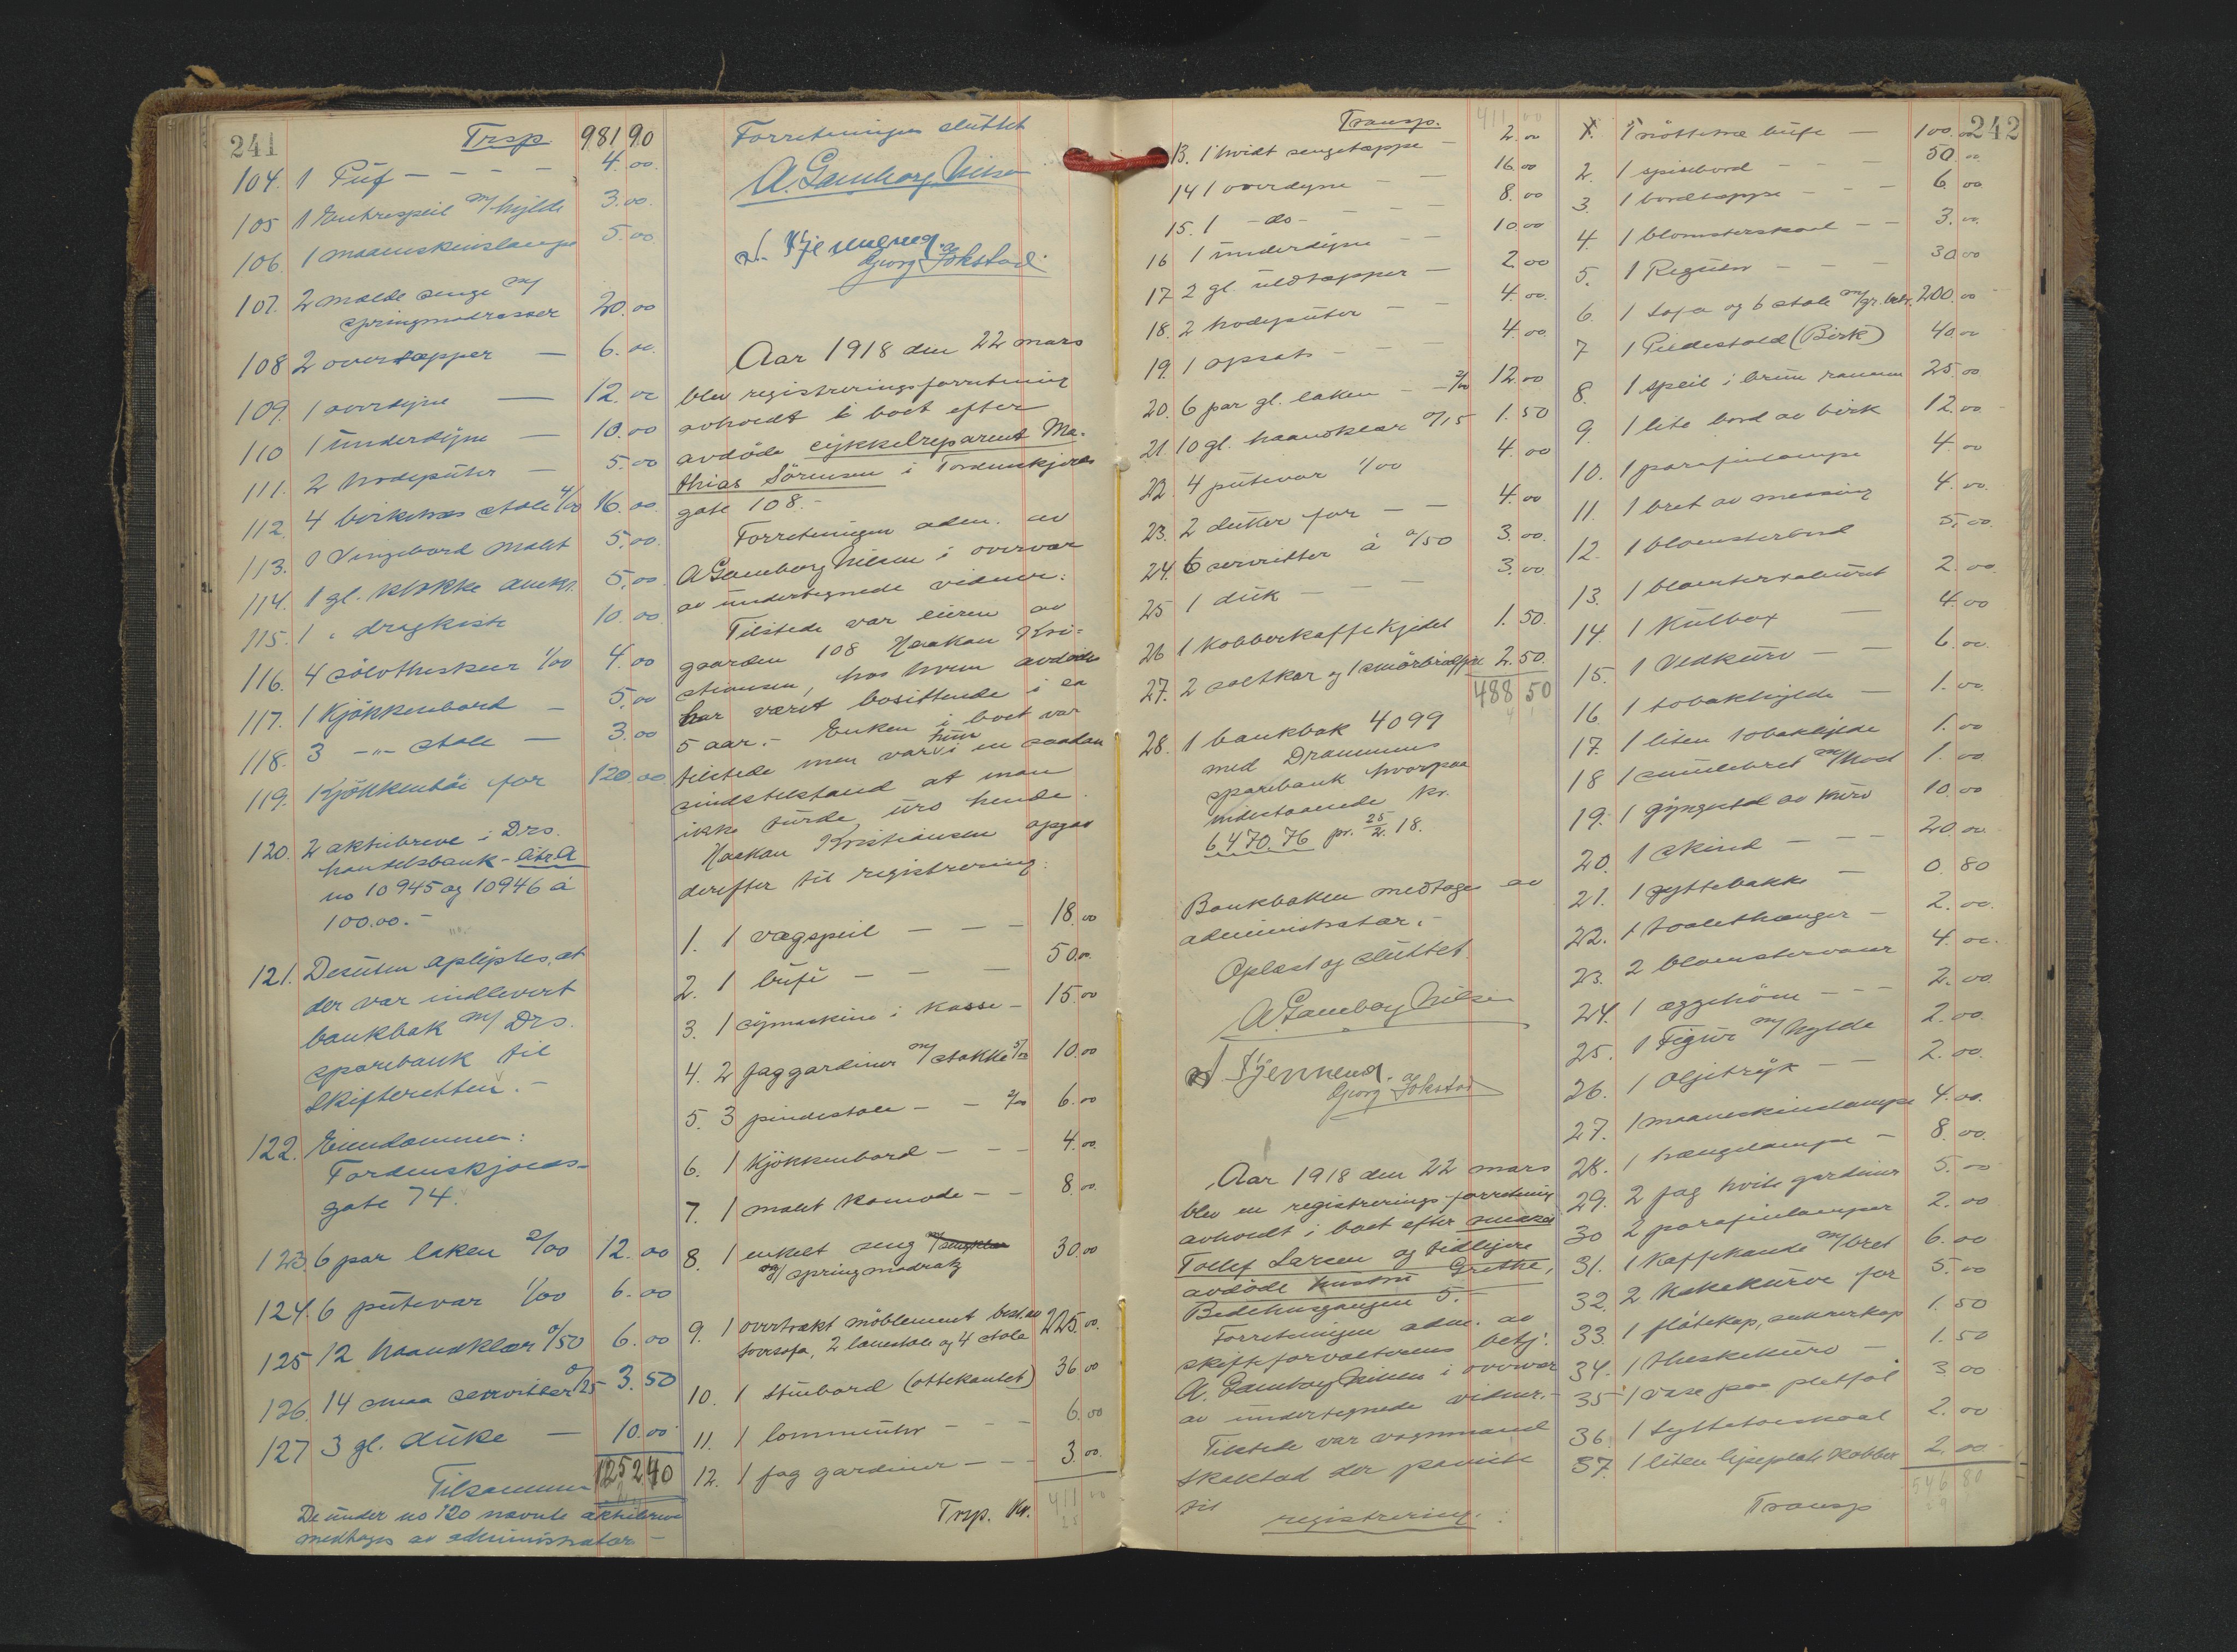 241
Trsp 981 90
104. 1 Puf — — — — 4.00
105 1 Entrespeil m/hylde 3.00.
106. 1 maaneskinslampe 5.00
107. 2 malde senge m/
springmadrasser 20.00
108 2 overtæpper — 6.00
109. 1 overdyne — 12.00
110 1 underdyne — 10.00
111. 2 hodeputer — 5.00
112. 4 birketræs stole 4/00 16.00
113. 1 Vingebord malt 5.00
114. 1 gl. klokke amkr. 5.00
115. 1 " dragkiste 10.00
116. 4 sølvtheskeer 1/00 4.00
117. 1 Kjøkkenbord — 5.00
118. 3 -"- stole — 3.00
119. Kjøkkentøi for 120.00
120. 2 aktiebreve i Drs.
handelsbank - litr. A
no 10945 og 10946 á
100.00.-
121. Desuten oplystes, at
der var indlevert
bankbok m/ Drs.
sparebank til
Skifteretten. -
122. Eiendommen:
Tordenskjolds-
gate 74.
123. 6 par laken 2/00 12.00
124. 6 putevar 1/00 6.00
125 12 haandklær 0/50 6.00
126. 14 smaa servitter 0/25 3.50
127 3 gl. duke — 10.00
Tilsammen 1252 40
De under no 120 nævnte aktiebreve
medtages av administrator -
Forretningen sluttet
A. Gamborg Nilsen
Georg Fokstad.
Aar 1918 den 22 mars
blev registreringsforretning
avholdt i boet efter
avdøde cykkelreparent Ma-
thias Sørensen i Tordenskjolds
gate 108.-
Forretningen adm. av
A Gamborg Nilsen i overvær
av undertegnede vidner:
Tilstede var eieren av
gaarden 108 Haakon Kri-
stiansen, hos hvem avdøde
har været bosittende i ca
5 aar.- Enken i boet var
tilstede men var hun i en saadan
sindstilstand at man
ikke turde uro hende.
Haakon Kristiansen opgav
derefter til registrering:
1. 1 vægspeil — — — 18.00
2. 1 büfe — — — 50.00
3. 1 symaskine i kasse - 15.00
4. 2 fag gardiner m/ stokke 5/00 10.00
5. 3 pindestole - - 2/00 6.00
6. 1 Kjøkkenbord - - - 4.00
7. 1 malt komode - - 8.00
8. 1 enkelt seng
m/ springmadrats 30.00
9. 1 overtrækt möblement best. av
sovesofa, 2 lænestole og 4 stole 225.00
10. 1 Stuebord (ottekantet) 36.00
11. 1 lommeuhr - - - 6.00
12. 1 fag gardiner - - - 3.00
Trsp. Kr. 411 00
Transp. 411 00
13. 1 hvidt sengetæppe - 2.00
14 1 overdyne — — 16.00
15. 1 -do- — — 8.00
16 1 underdyne - - 10.00
17 2 gl. uldtæpper - 2.00
18. 2 hodeputer - - 4.00
19. 1 opsats - - 4.00
20. 6 par gl. laken - - 2/00 12.00
21. 10 gl. haandklær 0/15 1.50
22. 4 putevar 1/00 4.00
23. 2 duker for - - 4.00
24. 6 servitter á 0/50 3.00
25 1 duk - - - 3.00
26 1 kobberkaffekjedel 1.50.
27. 2 saltkar og 1 smørbrikke 2.50.
488 50
28. 1 bankbok 4099
med Drammens
sparebank hvorpaa
indestaaende kr.
6470.76 pr. 25/2. 18.
Bankboken medtages av
administrator.-
Oplæst og sluttet.
A. Gamborg Nilsen
Georg Fokstad
Aar 1918 den 22 mars
blev en registrerings-forretning
avholdt i boet efter
Tollef Larsen og tidligere
avdøde hustru Grethe,
Bedehusgangen 5.-
Forretningen adm. av
skifteforvalterens betj.
A. Gamborg Nilsen i overvær
av undertegnede vidner.-
Tilstede var vognmand
Skalstad der paaviste
til
registrering:
242
1. 1 nøttetræ büfe — 100.00
2. 1 spisebord - - 50.00
3. 1 bordtæppe - - - 6.00
4. 1 blomsterskaal - - 3.00
5. 1 Regulator - - - 30.00
6. 1 Sofa og 6 stole m/gr. betr. 200.00
7 1 Piedestald (Birk) 40.00
8. 1 speil i brun ramme 25.00
9. 1 lite bord av birk 12.00
10. 1 parafinlampe 4.00
11. 1 bret av messing 4.00
12. 1 blomsterbord 5.00
13. 1 blomstertaburet 2.00
14 1 Kulbox — 4.00
15. 1 Vedkurv - - 6.00
16. 1 tobakhylde - 1.00
17. 1 liten tobakhylde 1.00
18 1 smulebret m/kost 1.00
19. 1 gyngestol av kurv 10.00
20. 1 skind - - - 20.00
21. 1 spyttebakke - 0.80
22. 1 toalethænger - 2.00
23. 2 blomstervaser 4.00
24. 1 æggehøne - - - 2.00
25. 1 Figur m/hylde 2.00
26. 1 Oljetryk - 2.00
27. 1 maaneskinslampe 4.00
28. 1 hængelampe - 8.00
29. 2 fag hvite gardiner 5.00
30 2 parafinlamper 2.00
31. 1 kaffekande m/bret 6.00
32. 2 Kakekurve for 5.00
33. 1 fløtekop, sukkerkop 1.50
34. 1 theskekurv - 1.50
35 1 vase paa pletfot 3.00
36. 1 syltetøiskaal 2.00
37. 1 liten lyseplate kobber 2.00
546 80
Transp